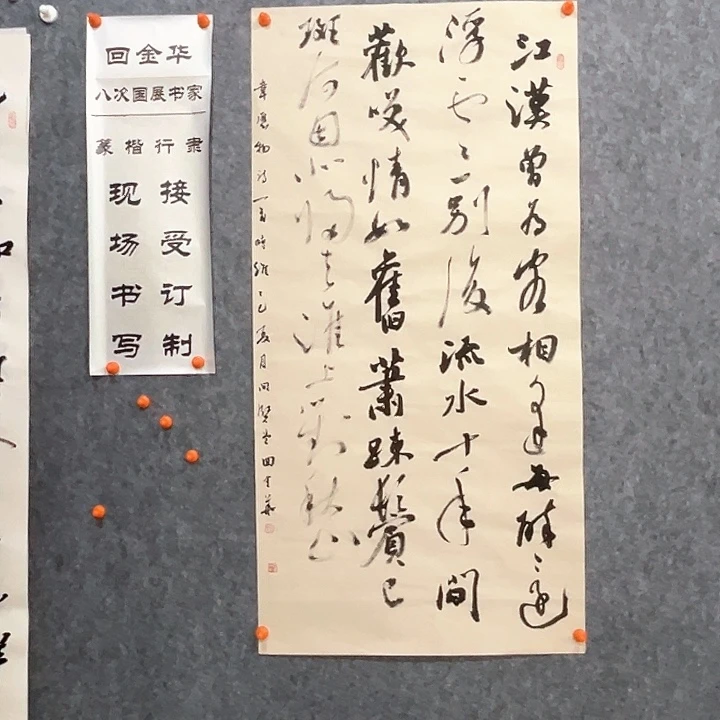 回金华
八次国展书家
篆楷行隶
现场书写
接受订制
江漢曾為客相逢每醉還
浮云一别後流水十年間
歡咲情如舊蕭踈鬢已
斑何因北歸去淮上對秋山
韋應物詩一首時維乙巳夏月賢堂回金華